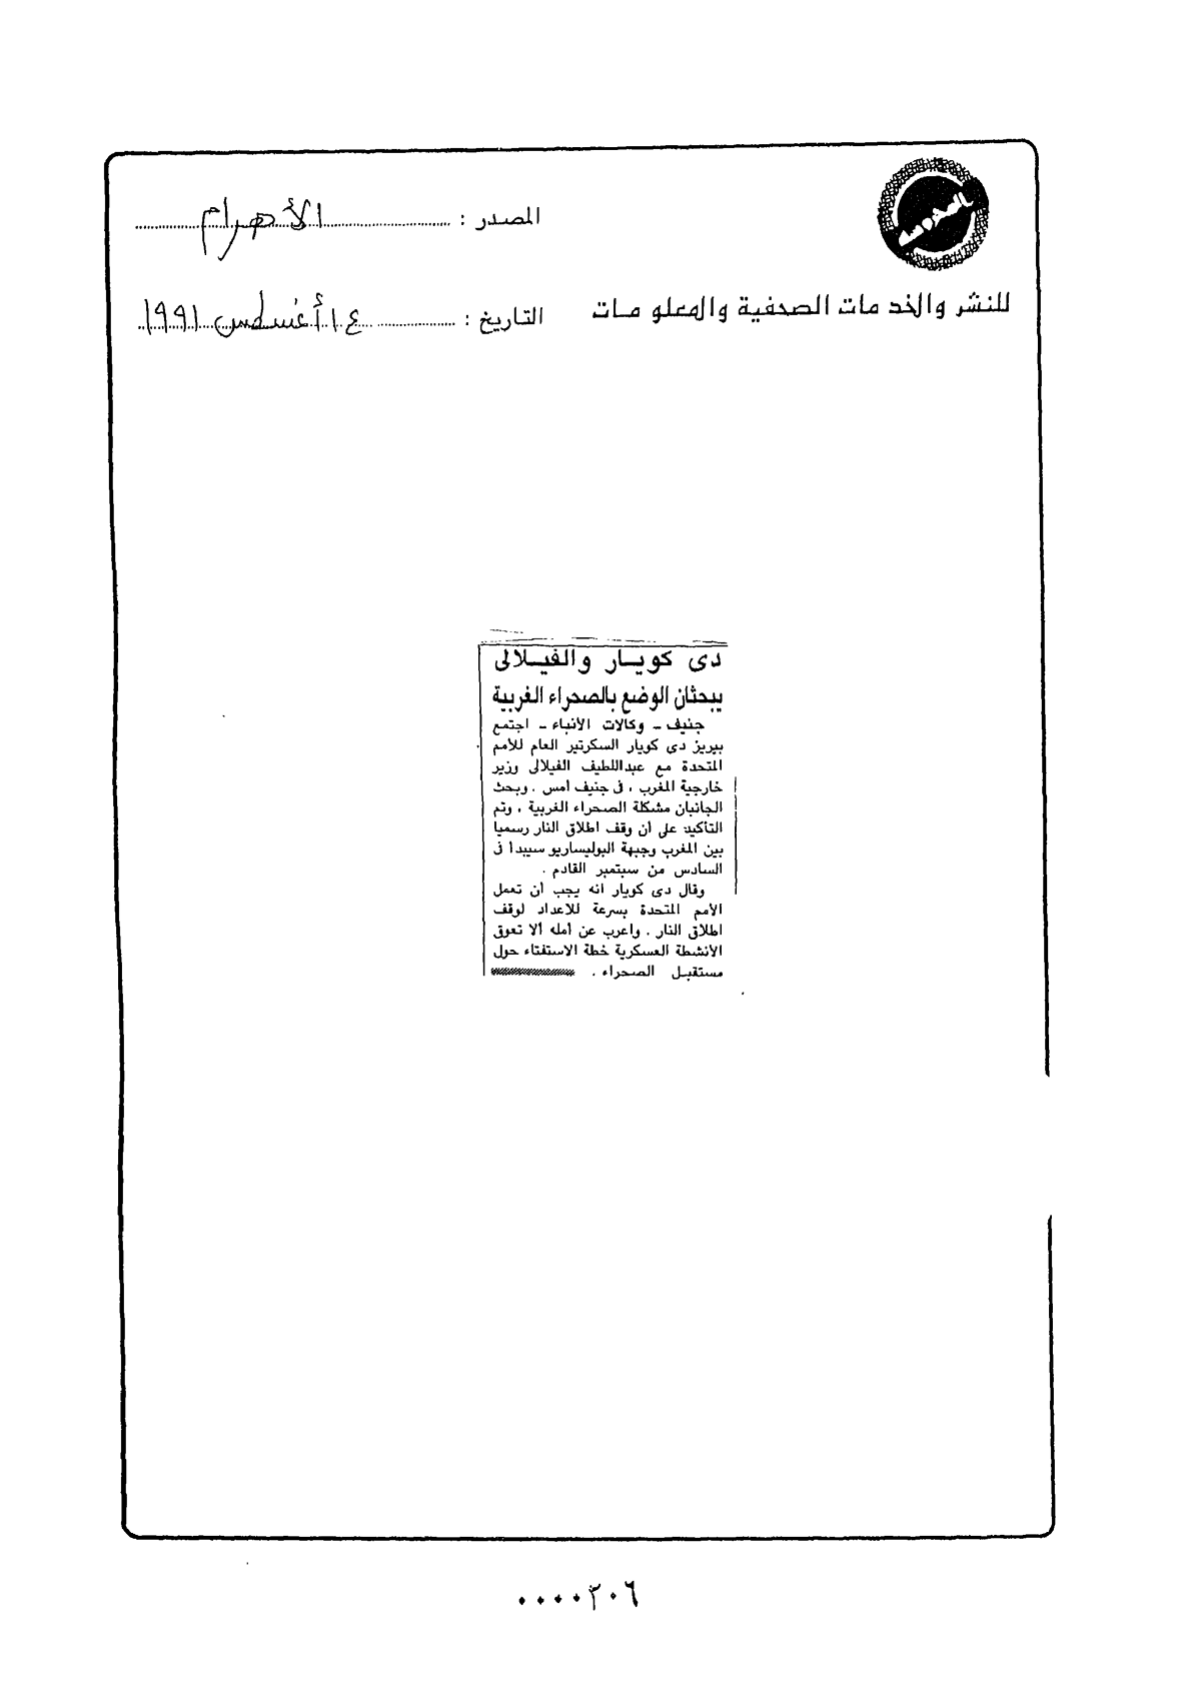 المصدر : الأهرام
للنشر والخدمات الصحفية والمعلومات
التاريخ : ١٤ أغسطس ١٩٩١
دى كويار والفيلالى
يبحثان الوضع بالصحراء الغربية
جنيف - وكالات الأنباء - اجتمع
بيريز دى كويار السكرتير العام للأمم
المتحدة مع عبداللطيف الفيلالى وزير
خارجية المغرب ، فى جنيف أمس . وبحث
الجانبان مشكلة الصحراء الغربية ، وتم
التأكيد على أن وقف اطلاق النار رسميا
بين المغرب وجبهة البوليساريو سيبدأ فى
السادس من سبتمبر القادم .
وقال دى كويار انه يجب أن تعمل
الأمم المتحدة بسرعة للاعداد لوقف
اطلاق النار . واعرب عن أمله ألا تعوق
الأنشطة العسكرية خطة الاستفتاء حول
مستقبل الصحراء .
٠٠٠٠٣٠٦